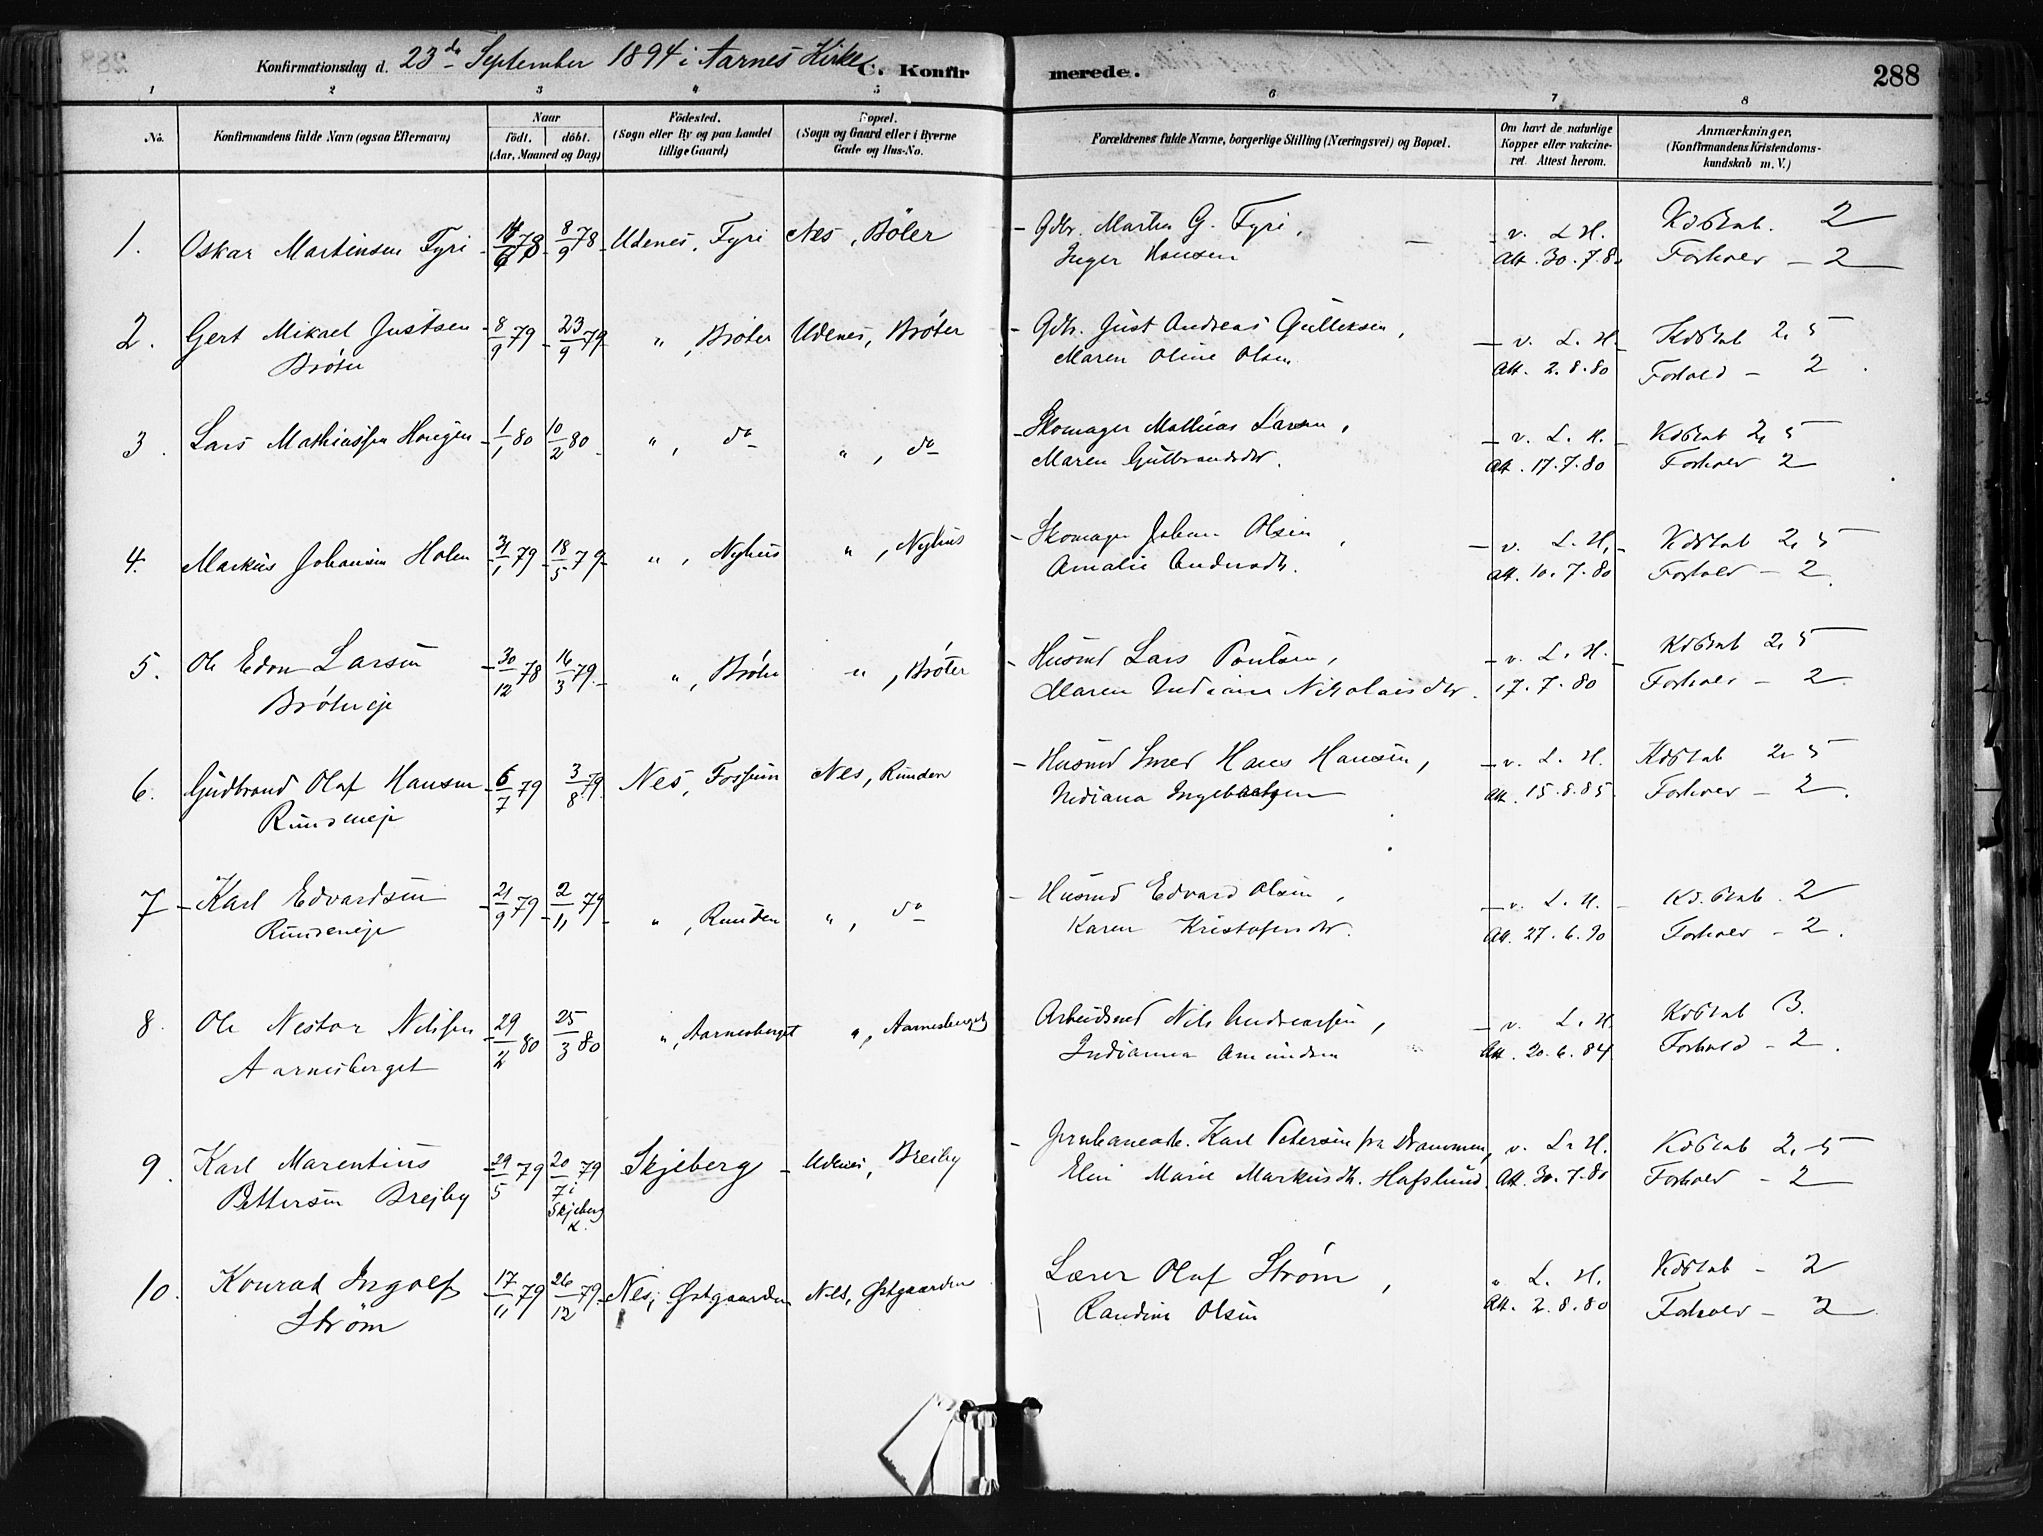 Konfirmationsdag d. 23de September 1894 i Aarnes Kirke
C. Konfirmerede.
288
1 2 3 4 5 6 7 8
No. Konfirmandens fulde Navn (ogsaa Efternavn) Naar födt. döbt. (Aar, Maaned og Dag) Födested. (Sogn eller By og paa Landet tillige Gaard) Bopæl. (Sogn og Gaard eller i Byerne Gade og Hus-No. Forældrenes fulde Navne, borgerlige Stilling (Næringsvei) og Bopæl. Om havt de naturlige Kopper eller vakcineret. Attest herom. Anmærkninger. (Konfirmandens Kristendomskundskab m. V.)
1. Oskar Martinsen Fyri 8/9 78 Udenes, Fyri Nes, Böler Gdbr. Martin G. Fyri, v. L. H. Kdskab. 2
Inger Hansen Att. 30.7.80 Forhold – 2
2. Gert Mikael Justsen 8/9 79 23/9 79 ", Bröter Udenes, Bröter Gdbr. Just Andreas Gulleksen, v. L. H. Kdskab 2,5
Bröter Maren Oline Olsen Att. 2.8.80 Forhold – 2
3. Lars Mathiassen Haugen 1/1 80 10/2 80 ", do ", do Skomager Mathias Larsen, v. L. H. Kdskab 2,5
Maren Gulbrandsdr. Att. 17.7.80 Forhold 2
4. Markus Johansen Holm 31/1 79 18/5 79 ", Nyhus ", Nyhus Skomager Johan Olsen, v. L. H. Kdskab 2,5
Amalie Andersdr. Att. 10.7.80 Forhold – 2
5. Ole Edon Larsen 30/12 78 16/3 79 ", Bröter ", Bröter Husmd Lars Poulsen, v. L. H. Kdskab 2,5
Bröterieje Maren Indiane Nikolaisdr. 17.7.80 Forhold – 2
6. Gudbrand Olaf Hansen 6/7 79 3/8 79 Nes, Fossum Nes, Runden Husmd Smed Hans Hansen, v. L. H. Kdskab 2,5
Rundeneje Indiana Ingebretsen Att. 15.8.85 Forhold – 2
7 Karl Edvardsen 21/9 79 2/11 79 ", Runden ", do Husmd Edvard Olsen, v. L. H. Kd.skab. 2
Rundeneje Karen Kristofersdr. Att. 27.6.90 Forhold – 2
8. Ole Nestor Nilssen 29/2 80 25/3 80 ", Aarnesberget ", Aarnesberget Arbeidsmd Nils Andreassen, v. L. H. Kdskab 3.
Aarnesberget Indianna Amundsen Att. 20.6.84 Forhold – 2
9. Karl Marentius 29/5 79 20/7 79 i Skjeberg K. Skjeberg Udenes, Breiby Karl Petersen fra Drammen, v. L. H. Kdskab 2,5
Pettersen Brejby Elin Marie Markusdr. Hafslund Att. 30.7.80 Forhold – 2
10. Konrad Ingolf 17/11 79 26/12 79 Nes, Östgaarden Nes, Östgaarden Lærer Olaf Ström, " L. H. Kdskab – 2
Ström Randine Olsen Att. 2.8.80 Forhold – 2